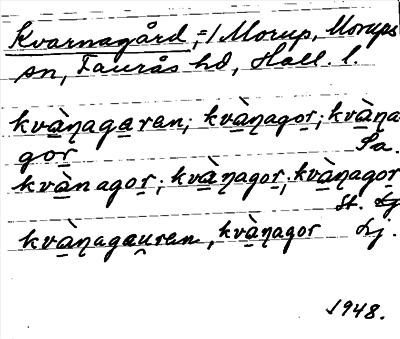 Kvarnagård, =/ Morup, Morups
sn, Faurås hd, Hall. l.
kvàṇagaren; kvàṇagor; kvàṇa
gor Sa.
kvànagor; kvàṇagor; kvàṇagor
St. Lj
kvàṇagau̯ren, kvàṇagor Lj.
1948.